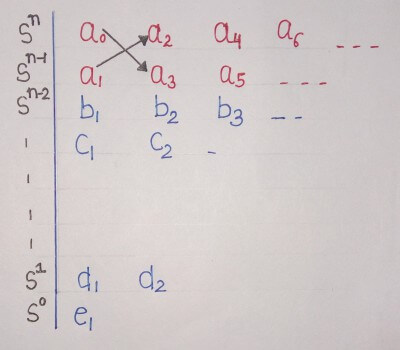 Sⁿ a₀ a₂ a₄ a₆ ---
Sⁿ⁻¹ a₁ a₃ a₅ ---
Sⁿ⁻² b₁ b₂ b₃ --
- c₁ c₂ -
S¹ d₁ d₂
S⁰ e₁